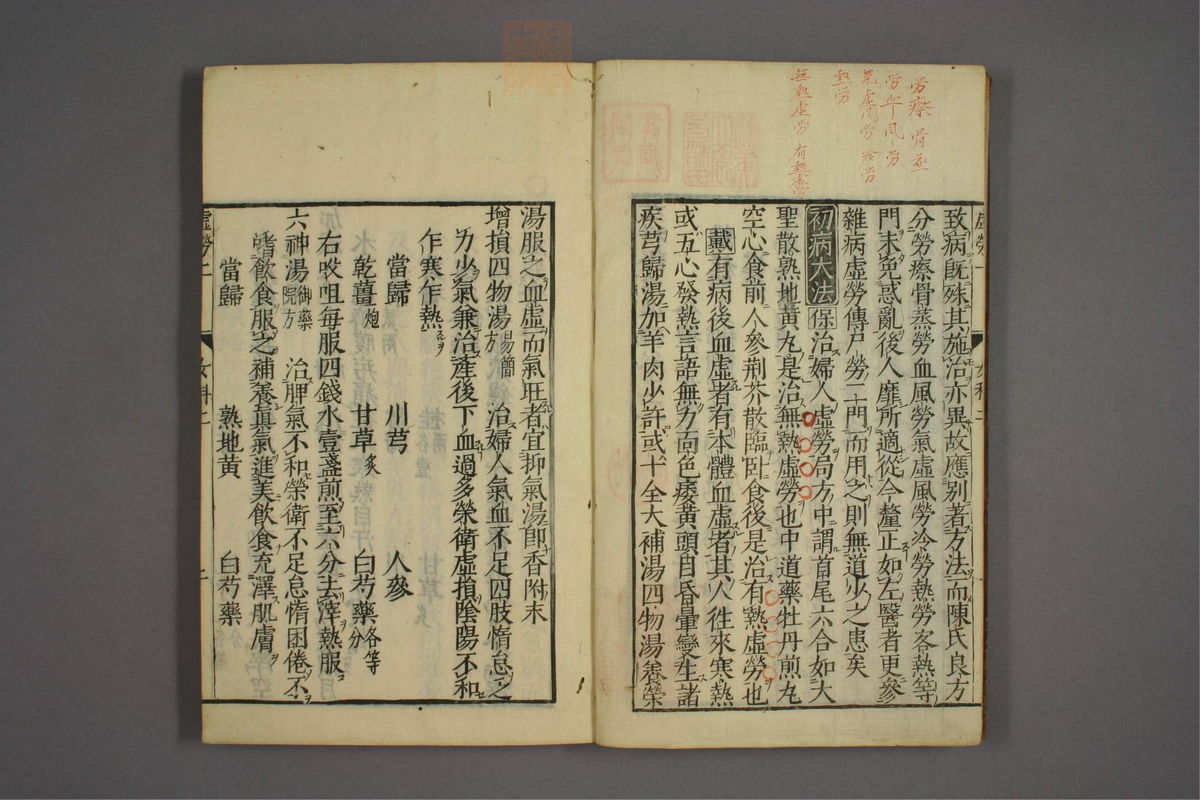 勞瘵 骨蒸
勞血風勞
氣虛風勞冷勞
熱勞
無熱虛勞 有熱虛勞
致病既殊其施治亦異故應別著方法而陳氏良方
分勞瘵骨蒸勞血風勞氣虛風勞冷勞熱勞客熱等
門未免惑亂後人靡所適從今釐正如左醫者更參
雜病虛勞傳尸勞二門而用之則無道少之患矣
初病大法 保 治婦人虛勞局方中謂首尾六合如大
聖散熟地黃丸是治無熱虛勞也中道藥牡丹煎丸
空心食前人參荊芥散臨臥食後是治有熱虛勞也
戴 有病後血虛者有本體血虛者其人往來寒熱
或五心發熱言語無力面色痿黃頭目昏暈變生諸
疾芎歸湯加羊肉少許或十全大補湯四物湯養榮
虛勞一 女科二
湯服之血虛而氣旺者宜抑氣湯卽香附末
增損四物湯 易簡方 治婦人氣血不足四肢惰怠乏
力少氣兼治產後下血過多榮衛虛損陰陽不和
乍寒乍熱
當歸 川芎 人參
乾薑 炮 甘草 炙 白芍藥 各等分
右㕮咀每服四錢水壹盞煎至六分去滓熱服
六神湯 御藥院方 治脾氣不和榮衛不足怠惰困倦不
嗜飲食服之補養眞氣進美飲食充澤肌膚
當歸 熟地黃 白芍藥
虛勞二 女科二